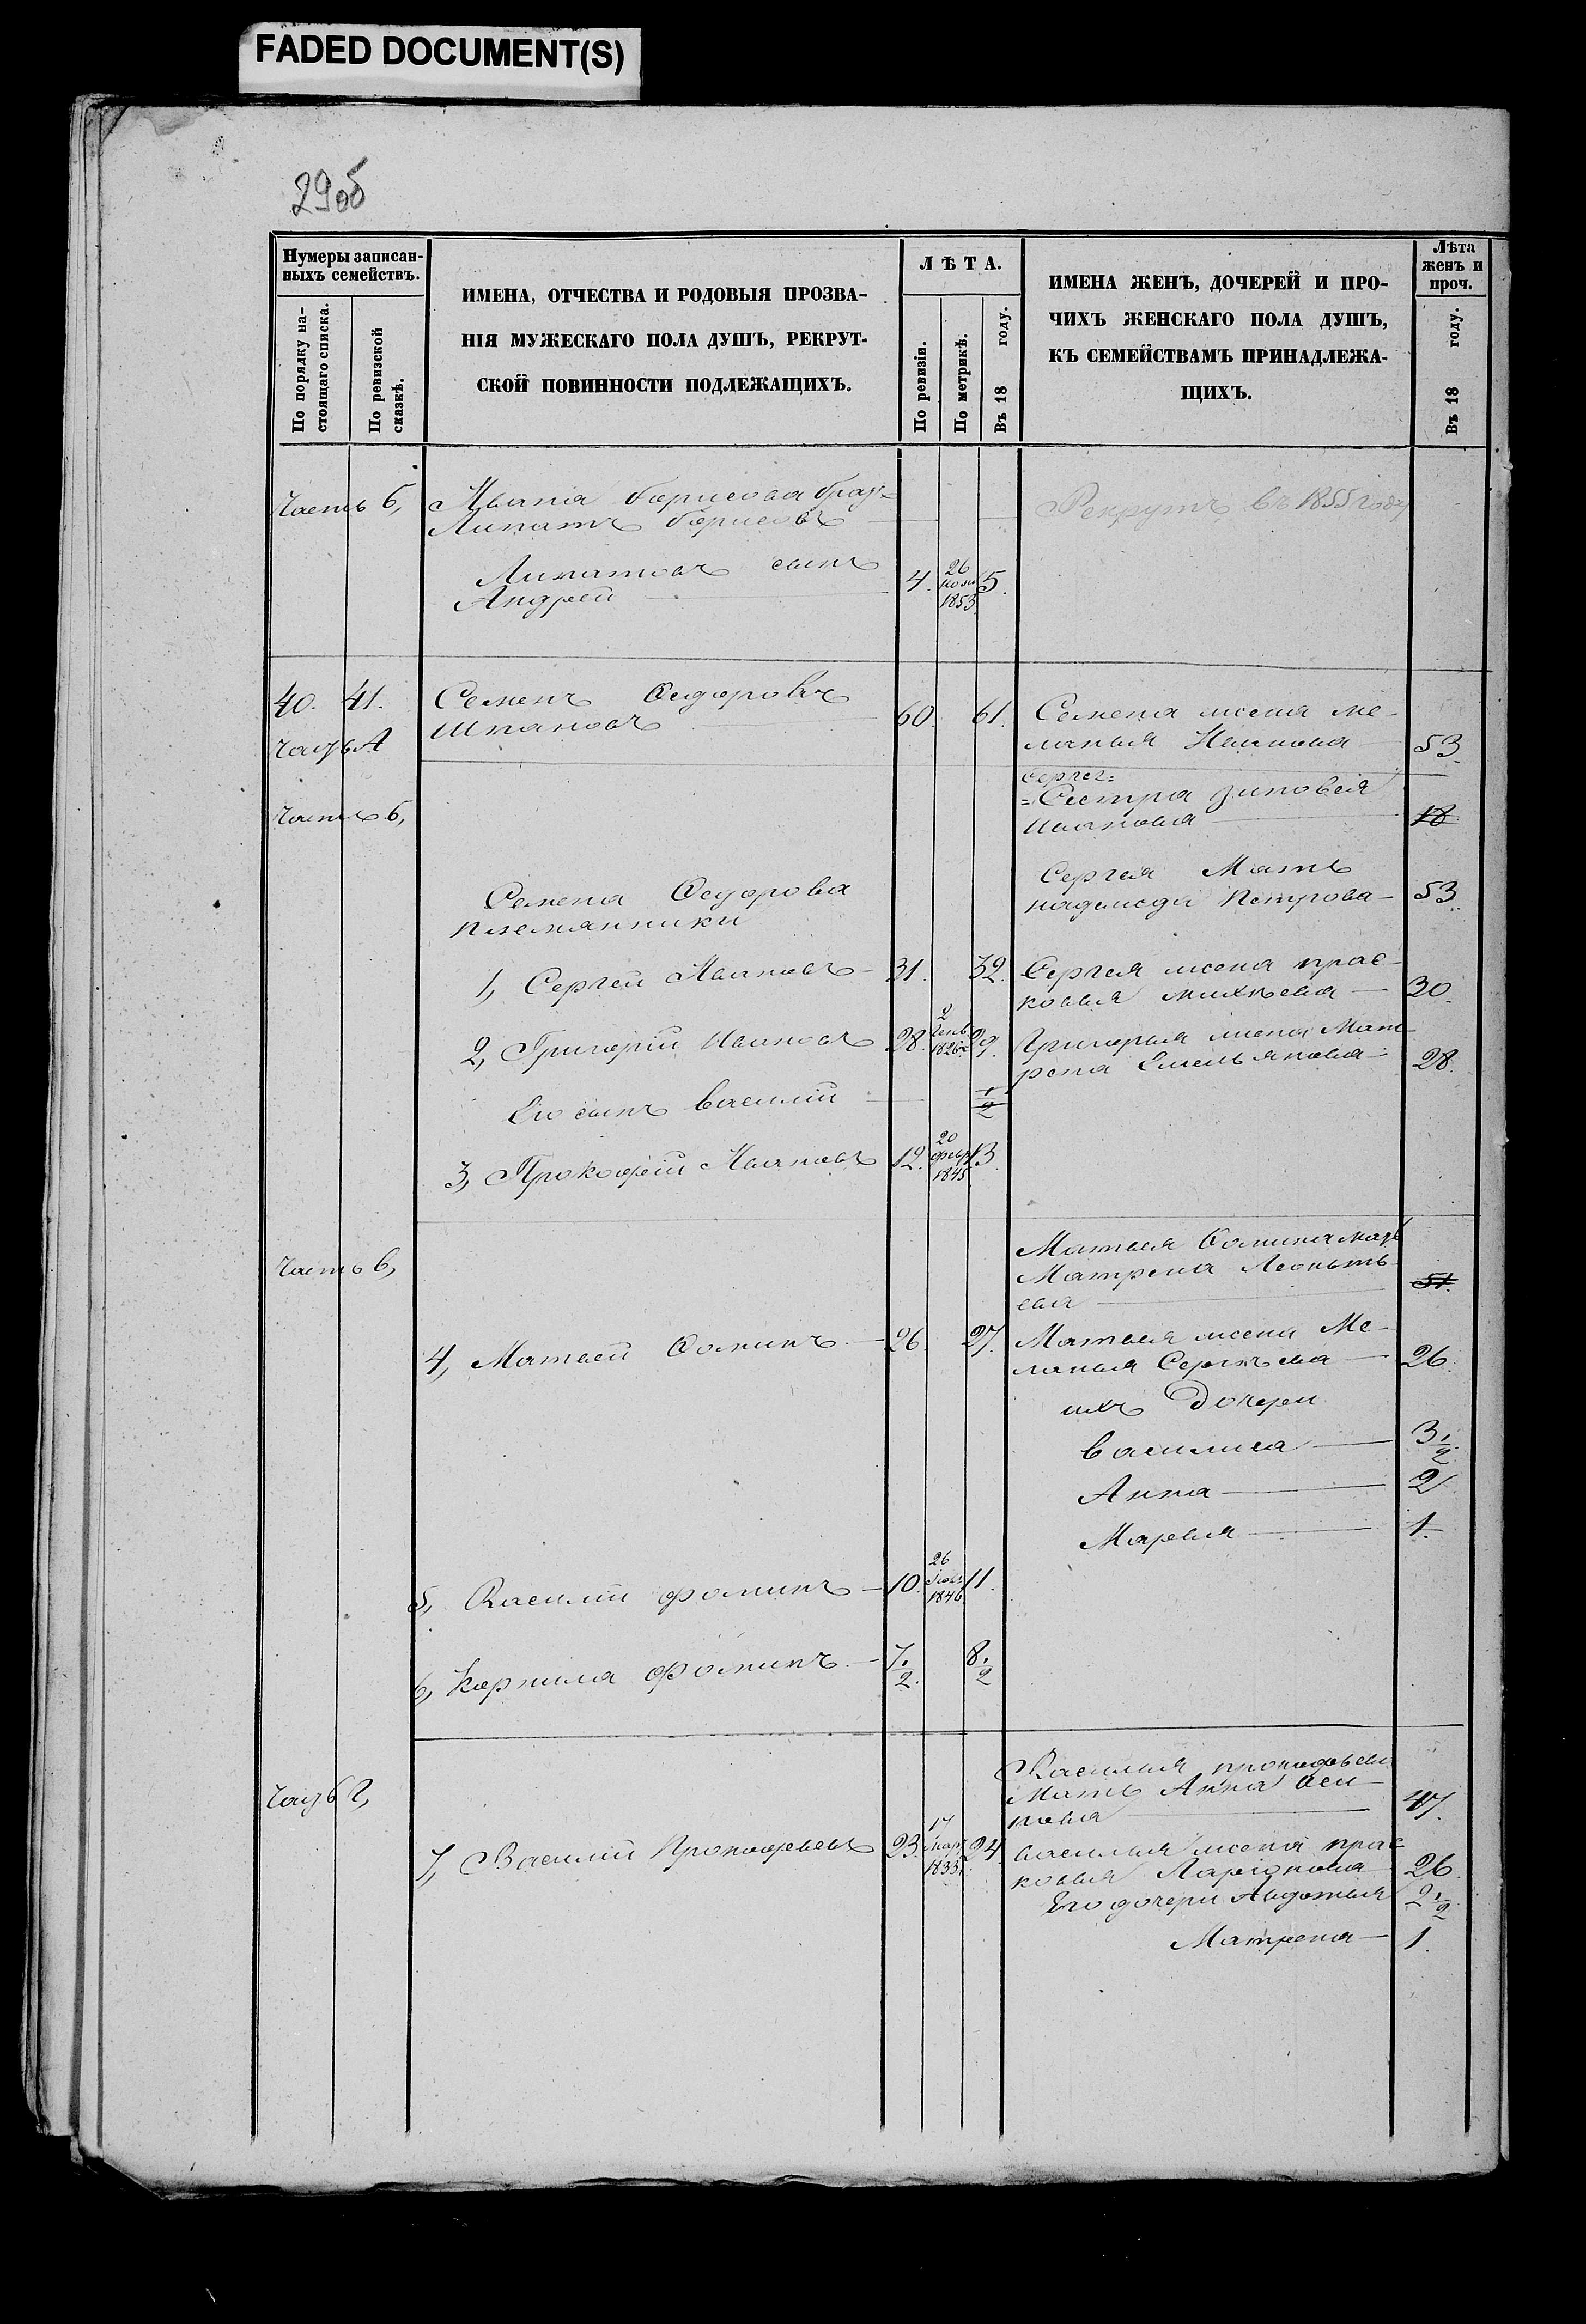 FADED DOCUMENT(S)
29об
Нумеры записан-
ныхъ семействъ.
По порядку на-
стоящаго списка.
По ревизской
сказкѣ.
ИМЕНА, ОТЧЕСТВА И РОДОВЫЯ ПРОЗВА-
НІЯ МУЖЕСКАГО ПОЛА ДУШЪ, РЕКРУТ-
СКОЙ ПОВИННОСТИ ПОДЛЕЖАЩИХЪ.
ЛѢТА.
По ревизіи.
По метрикѣ.
Въ 18 году.
ИМЕНА ЖЕНЪ, ДОЧЕРЕЙ И ПРО-
ЧИХЪ ЖЕНСКАГО ПОЛА ДУШЪ,
КЪ СЕМЕЙСТВАМЪ ПРИНАДЛЕЖА-
ЩИХЪ.
Лѣта
женъ и
проч.
Въ 18 году.
Часть б,
Ивана Борисова брат=
Липатъ Борисовъ
Рекрутъ въ 1855 году
Липатовъ сынъ
Андрей 4. 26 1853 5.
40. 41. Семенъ Ѳедоровъ
Шпановъ 60. 61. Семена жена Ме-
ланья Иванова 53.
Часть А
Часть б,
Сергея=
=Сестра Зиновея
Иванова 18
Сергея Мать
надежда Петрова 53.
Семена Ѳедорова
племянники
1, Сергей Ивановъ 31. 32. Сергея жена прас-
ковья михѣева 30.
2, Григорій Ивановъ 28. 2 Генв. 1826 29. Григорья жена Мат-
рена Емельянова 28.
Его сынъ василій 1/2
3, Прокофій Ивановъ 12. 20 февр 1845 13.
Часть в,
Матвея Ѳомина мать
Матрена Леонть-
ева 51.
4, Матвей Ѳоминъ 26. 27. Матвея жена Ме-
ланья Сергѣева 26.
ихъ Дочери
василиса 3 1/2
Анна 2
Марья 1.
5, Василій фоминъ 10. 26 1846 11.
6, Корнила фоминъ 7 1/2. 8 1/2
Часть г,
Василья прокофьева
Мать Анна Оси-
пова 47.
7, Василій Прокофьевъ 23. 17 март 1833 24. василья жена прас
ковья Ларіонова 26.
Его дочери Авдотья 2 1/2
Матрена 1.